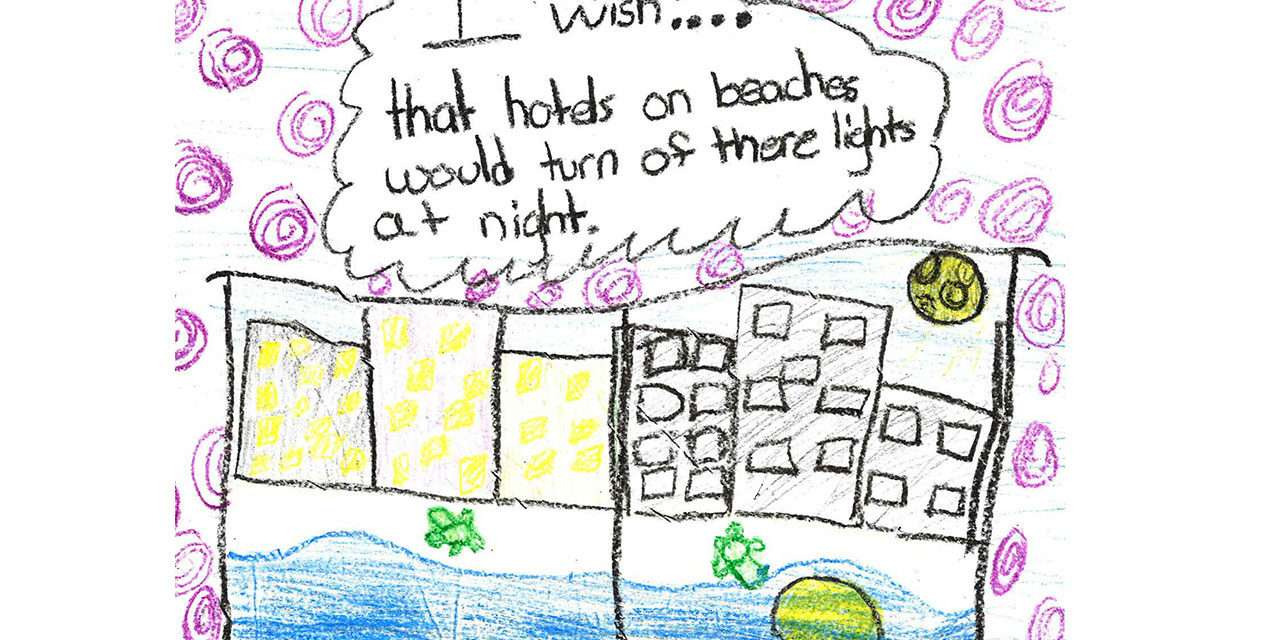 I wish....
that hotels on beaches
would turn of there lights
at night.